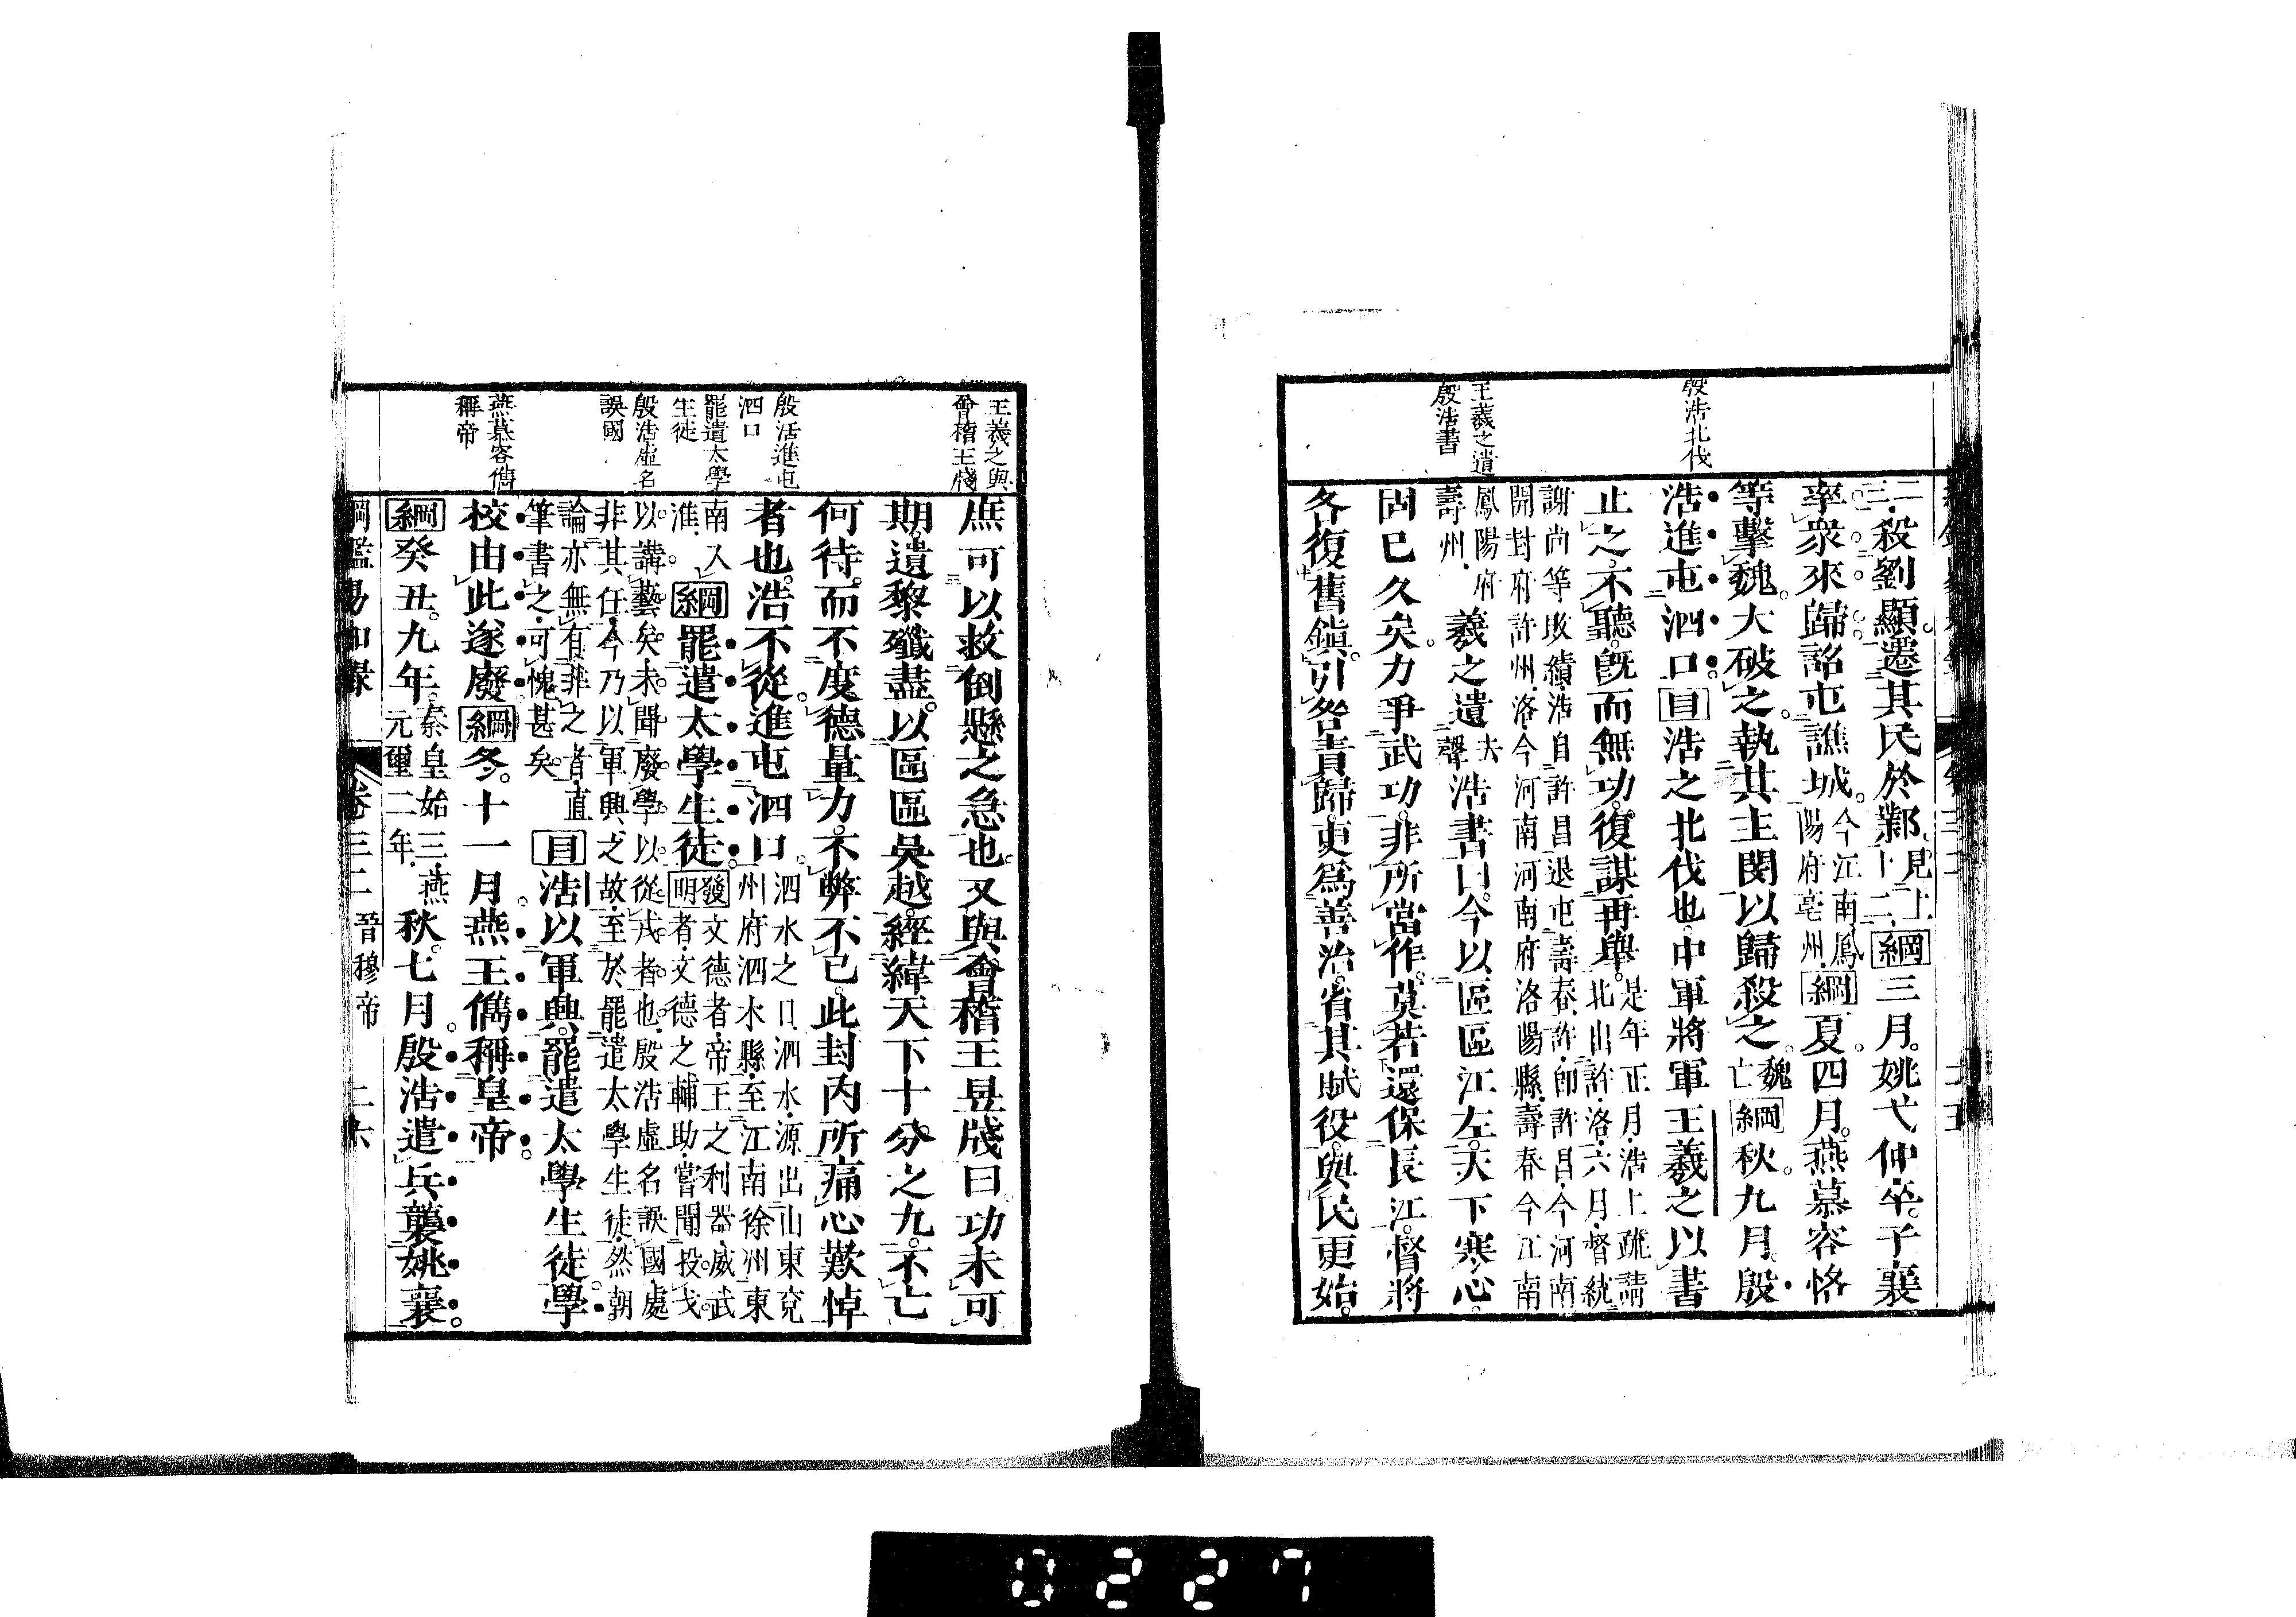 殷浩北伐
王羲之遺
殷浩書
二三殺劉顯遷其民於鄴見上十二綱三月姚弋仲卒子襄
率衆來歸詔屯譙城今江南鳳陽府亳州綱夏四月燕慕容恪
等擊魏大破之執其主閔以歸殺之魏亡綱秋九月殷
浩進屯泗口目浩之北伐也中軍將軍王羲之以書
止之不聽既而無功復謀再舉是年正月浩上疏請北出許洛六月督統
謝尚等敗績浩自許昌退屯壽春許卽許昌今河南
開封府許州洛今河南河南府洛陽縣壽春今江南
鳳陽府壽州羲之遺去聲浩書曰今以區區江左天下寒心
固已久矣力爭武功非所當作莫若還保長江督將
各復舊鎭引咎責歸更爲善治省其賦役與民更始
王羲之與
會稽王牋
殷浩進屯
泗口
罷遣太學
生徒
殷浩虛名
誤國
燕慕容儁
稱帝
庶可以救倒懸之急也又與會稽王昱牋曰功未可
期遺黎殲盡以區區吳越經緯天下十分之九不亡
何待而不度德量力不弊不已此封內所痛心歎悼
者也浩不從進屯泗口泗水之口泗水源出山東兗州府泗水縣至江南徐州東
南入淮綱罷遣太學生徒發明文德者帝王之利器威武者文德之輔助嘗聞投戈
以講藝矣未聞廢學以從戎者也殷浩虛名誤國處
非其任今乃以軍興之故至於罷遣太學生徒然朝
論亦無有非之者直筆書之可愧甚矣目浩以軍興罷遣太學生徒學
校由此遂廢綱冬十一月燕王儁稱皇帝
綱癸丑九年秦皇始三燕元璽二年秋七月殷浩遣兵襲姚襄
綱鑑易知錄 卷三二 晉穆帝 二六
0227